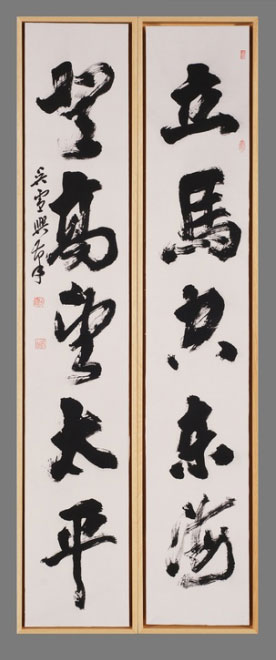 立馬空东海
登高望太平